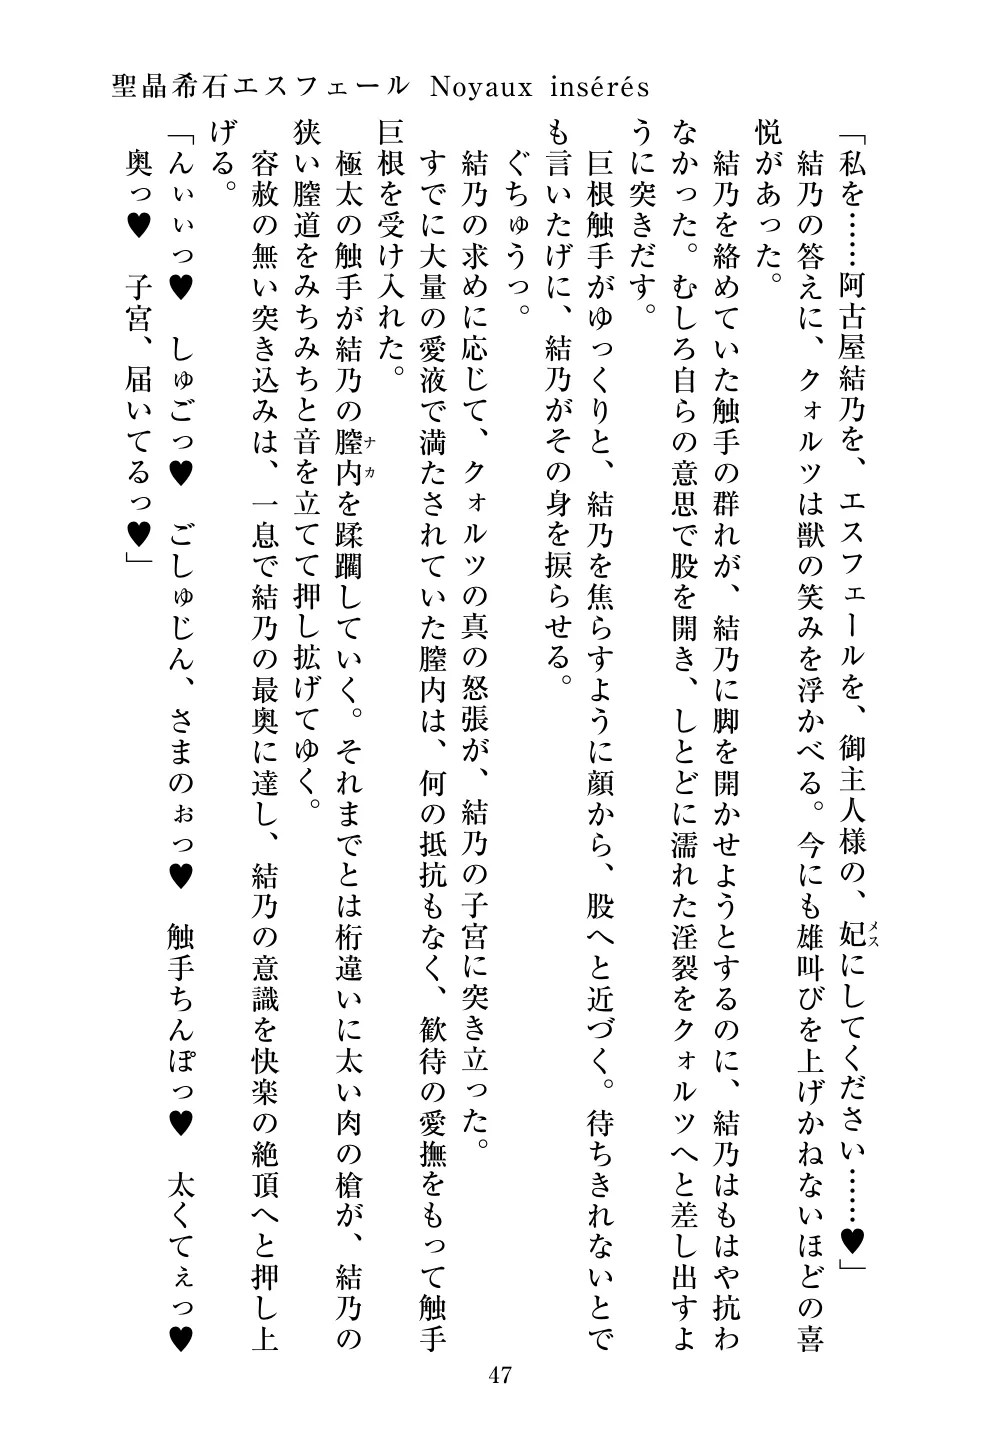 聖晶希石エスフェール Noyaux insérés
「私を……阿古屋結乃を、エスフェールを、御主人様の、妃にしてください……♥」
メス
　結乃の答えに、クォルツは獣の笑みを浮かべる。今にも雄叫びを上げかねないほどの喜
悦があった。
　結乃を絡めていた触手の群れが、結乃に脚を開かせようとするのに、結乃はもはや抗わ
なかった。むしろ自らの意思で股を開き、しとどに濡れた淫裂をクォルツへと差し出すよ
うに突きだす。
　巨根触手がゆっくりと、結乃を焦らすように顔から、股へと近づく。待ちきれないとで
も言いたげに、結乃がその身を捩らせる。
　ぐちゅうっ。
　結乃の求めに応じて、クォルツの真の怒張が、結乃の子宮に突き立った。
　すでに大量の愛液で満たされていた膣内は、何の抵抗もなく、歓待の愛撫をもって触手
巨根を受け入れた。
　極太の触手が結乃の膣内を蹂躙していく。それまでとは桁違いに太い肉の槍が、結乃の
ナカ
狭い膣道をみちみちと音を立てて押し拡げてゆく。
　容赦の無い突き込みは、一息で結乃の最奥に達し、結乃の意識を快楽の絶頂へと押し上
げる。
「んぃぃっ♥　しゅごっ♥　ごしゅじん、さまのぉっ♥　触手ちんぽっ♥　太くてぇっ♥
　奥っ♥　子宮、届いてるっ♥」
47